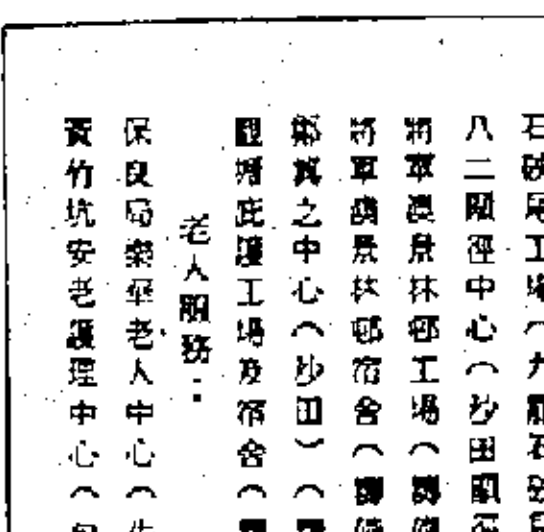 石硤尾工場（九龍石硤
八二隔徑中心（沙田隔徑
將軍澳景林邨工場（
將軍澳景林邨宿舍（
鄭真之中心（沙田）（
觀塘庇護工場及宿舍（
老人服務：
保良局樂華老人中心（牛
黃竹坑安老護理中心（